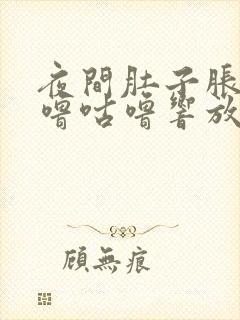 夜間肚子脹
嚕咕嚕響放
顧無痕